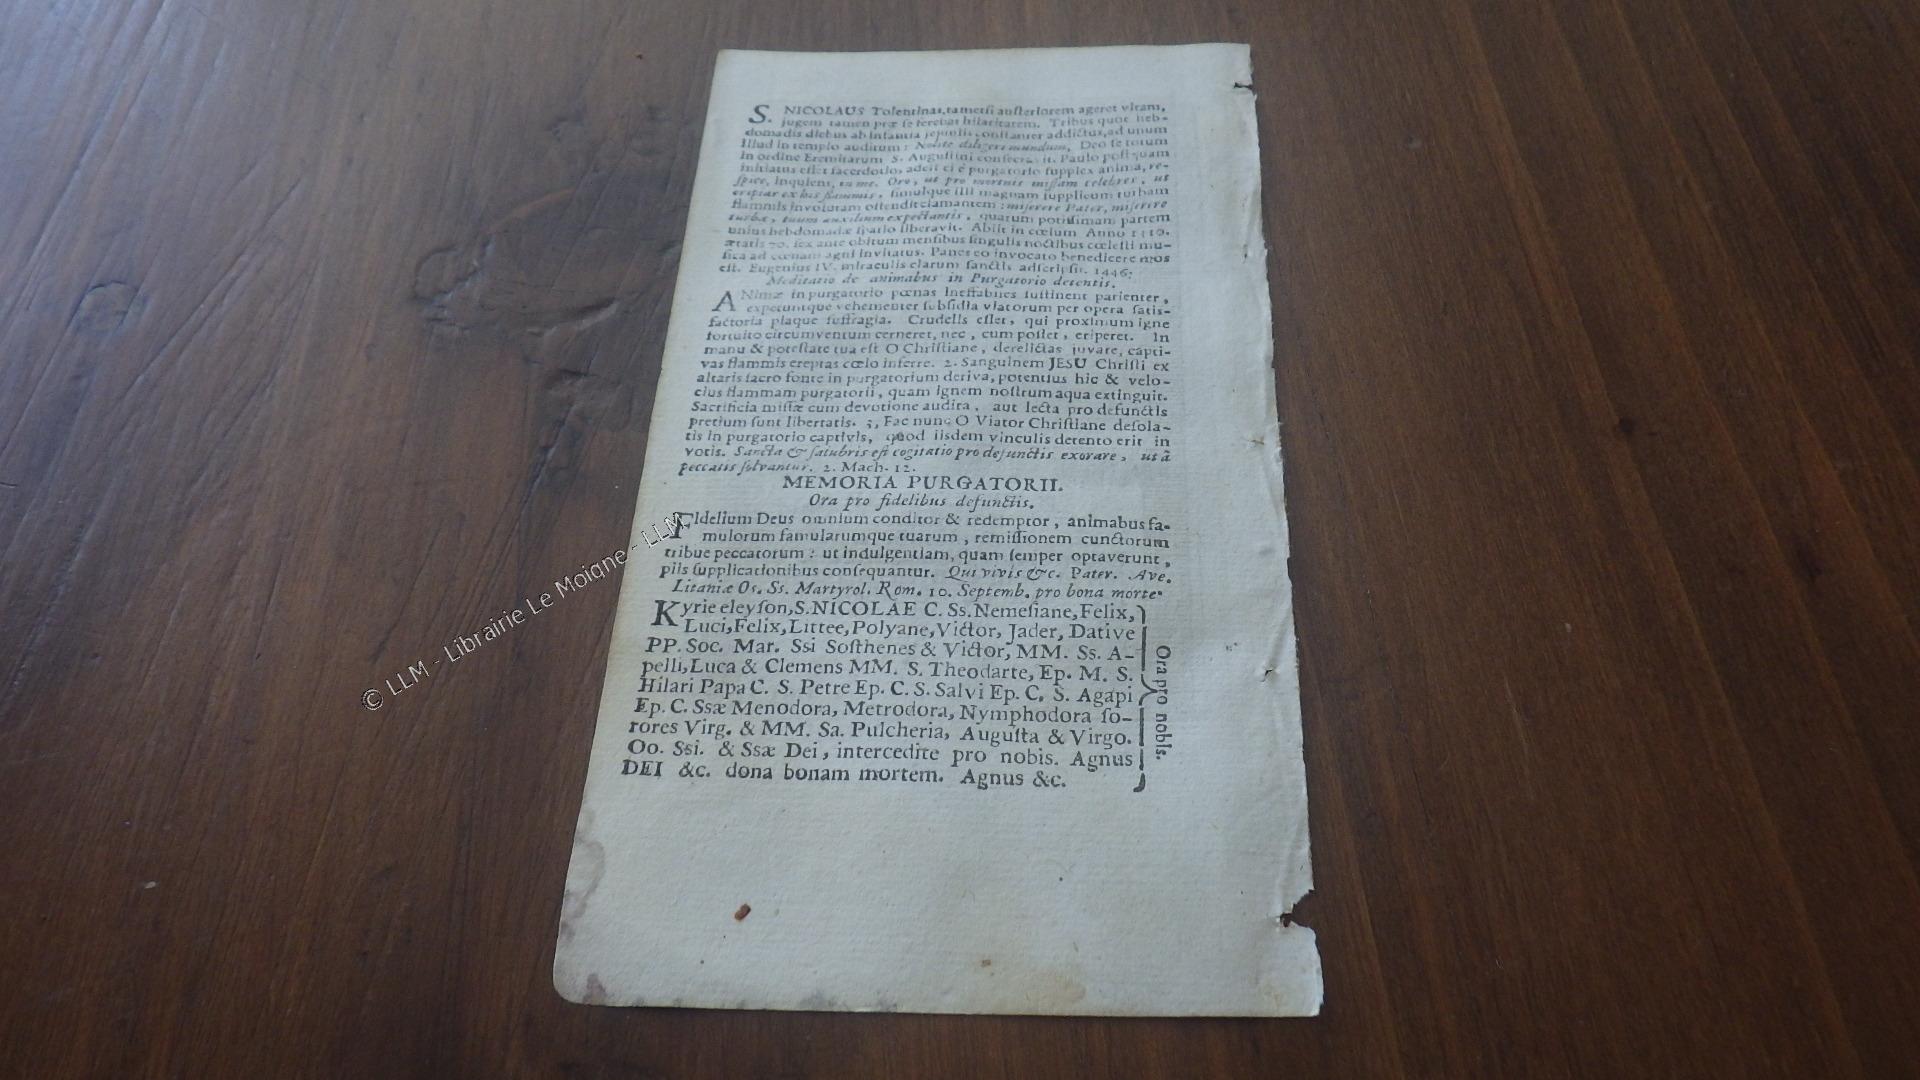 S. NICOLAUS Tolentinas, tametsi austeriorem ageret vitam,
jugem tamen præ se ferebat hilaritatem. Tribus quoc heb-
domadis diebus ab infantia jejuniis constanter addictus, ad unum
illud in templo auditum: Nolite diligere mundum, Deo se totum
in ordine Eremitarum S. Augustini consecravit. Paulo postquam
initiatus esset sacerdotio, adest ei è purgatorio supplex anima, re-
spice, inquiens, in me. Oro, ut pro mortuis missam celebres, ut
eripiar ex his flammis, simulque illi magnam supplicum turbam
flammis involutam ostendit clamantem: miserere Pater, miserere
turbæ, tuum auxilium expectantis, quarum potissimam partem
unius hebdomadæ spatio liberavit. Abiit in cœlum Anno 1310.
ætatis 70. sex ante obitum mensibus singulis noctibus cœlesti mu-
sica ad cœnam agni invitatus. Panes eo invocato benedicere mos
est. Eugenius IV. miraculis clarum sanctis adscripsit. 1446.
Meditatio de animabus in Purgatorio detentis.
ANimæ in purgatorio pœnas ineffabiles sustinent patienter,
expetuntque vehementer subsidia viatorum per opera satis-
factoria piaque suffragia. Crudelis esset, qui proximum igne
fortuito circumventum cerneret, nec, cum posset, eriperet. In
manu & potestate tua est O Christiane, derelictas juvare, capti-
vas flammis ereptas cœlo inferre. 2. Sanguinem JESU Christi ex
altaris sacro fonte in purgatorium deriva, potentius hic & velo-
cius flammam purgatorii, quam ignem nostrum aqua extinguit.
Sacrificia missæ cum devotione audita, aut lecta pro defunctis
pretium sunt libertatis. 3, Fac nunc O Viator Christiane desola-
tis in purgatorio captivis, quod iisdem vinculis detento erit in
votis. Sancta & salubris est cogitatio pro defunctis exorare, ut à
peccatis solvantur. 2. Mach. 12.
MEMORIA PURGATORII.
Ora pro fidelibus defunctis.
FIdelium Deus omnium conditor & redemptor, animabus fa-
mulorum famularumque tuarum, remissionem cunctorum
tribue peccatorum: ut indulgentiam, quam semper optaverunt,
piis supplicationibus consequantur. Qui vivis &c. Pater. Ave.
Litaniæ Os. Ss. Martyrol. Rom. 10. Septemb. pro bona morte.
Kyrie eleyson, S. NICOLAE C. Ss. Nemesiane, Felix,
Luci, Felix, Littee, Polyane, Victor, Jader, Dative
PP. Soc. Mar. Ssi Sosthenes & Victor, MM. Ss. A-
pelli, Luca & Clemens MM. S. Theodarte, Ep. M. S.
Hilari Papa C. S. Petre Ep. C. S. Salvi Ep. C. S. Agapi
Ep. C. Ssæ Menodora, Metrodora, Nymphodora so-
rores Virg. & MM. Sa. Pulcheria, Augusta & Virgo.
Oo. Ssi. & Ssæ Dei, intercedite pro nobis. Agnus
DEI &c. dona bonam mortem. Agnus &c.
Ora pro nobis.
© LLM - Librairie Le Moigne - LLM